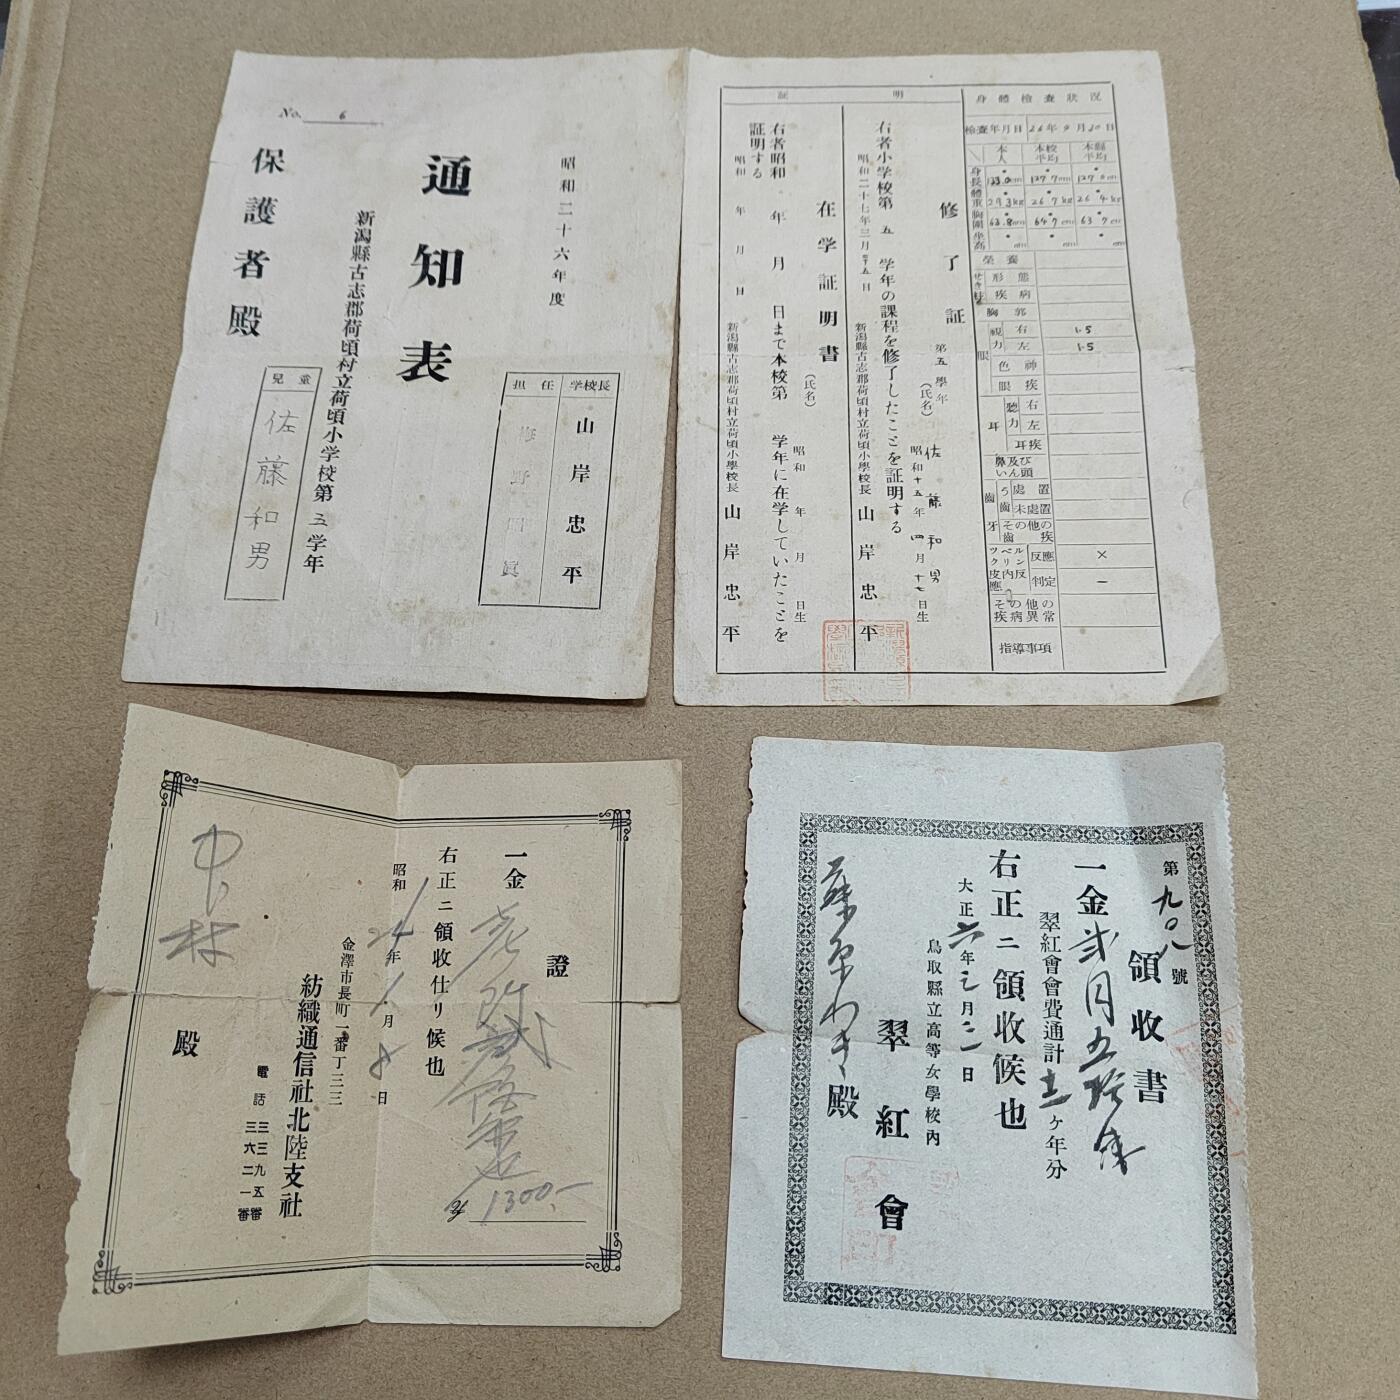 No. 6
昭和二十六年度
通知表
新潟縣古志郡荷頃村立荷頃小学校第五学年
保護者殿
学校長
山岸忠平
担任
児童
佐藤和男
身體檢査狀況
檢査年月日
26年9月20日
本人
本校平均
本縣平均
身長
133.0cm
127.7cm
127.0cm
體重
29.3kg
26.7kg
26.4kg
胸圍
63.8cm
64.7cm
63.7cm
坐高
cm
cm
cm
榮養
せき柱
形態
疾病
胸郭
眼
視力
右
1.5
左
1.5
色神
眼疾
耳
聽力
右
左
耳疾
鼻及びいん頭
齒牙
う齒
処置
未処置
その他の齒疾
ツベルクリン皮内反應
反應
×
判定
−
その他の疾病異常
指導事項
証明
修了証
第五學年
(氏名)
佐藤和男
昭和十五年四月十七日生
右者小学校第五学年の課程を修了したことを証明する
昭和二十七年三月二十五日
新潟縣古志郡荷頃村立荷頃小學校長 山岸忠平
在学証明書
(氏名)
昭和 年 月 日生
右者昭和 年 月 日まで本校第 学年に在学していたことを
証明する
昭和 年 月 日
新潟縣古志郡荷頃村立荷頃小學校長 山岸忠平
證
一金
¥1300.-
右正ニ領收仕リ候也
昭和24年1月8日
金澤市長町一番丁三三
紡織通信社北陸支社
電話 三三九五番
三六二一番
中村
殿
第九〇八號
領收書
一金弐円五拾銭
翠紅會會費通計 ヶ年分
右正ニ領收候也
大正六年三月三日
鳥取縣立高等女學校内
翠紅會
殿